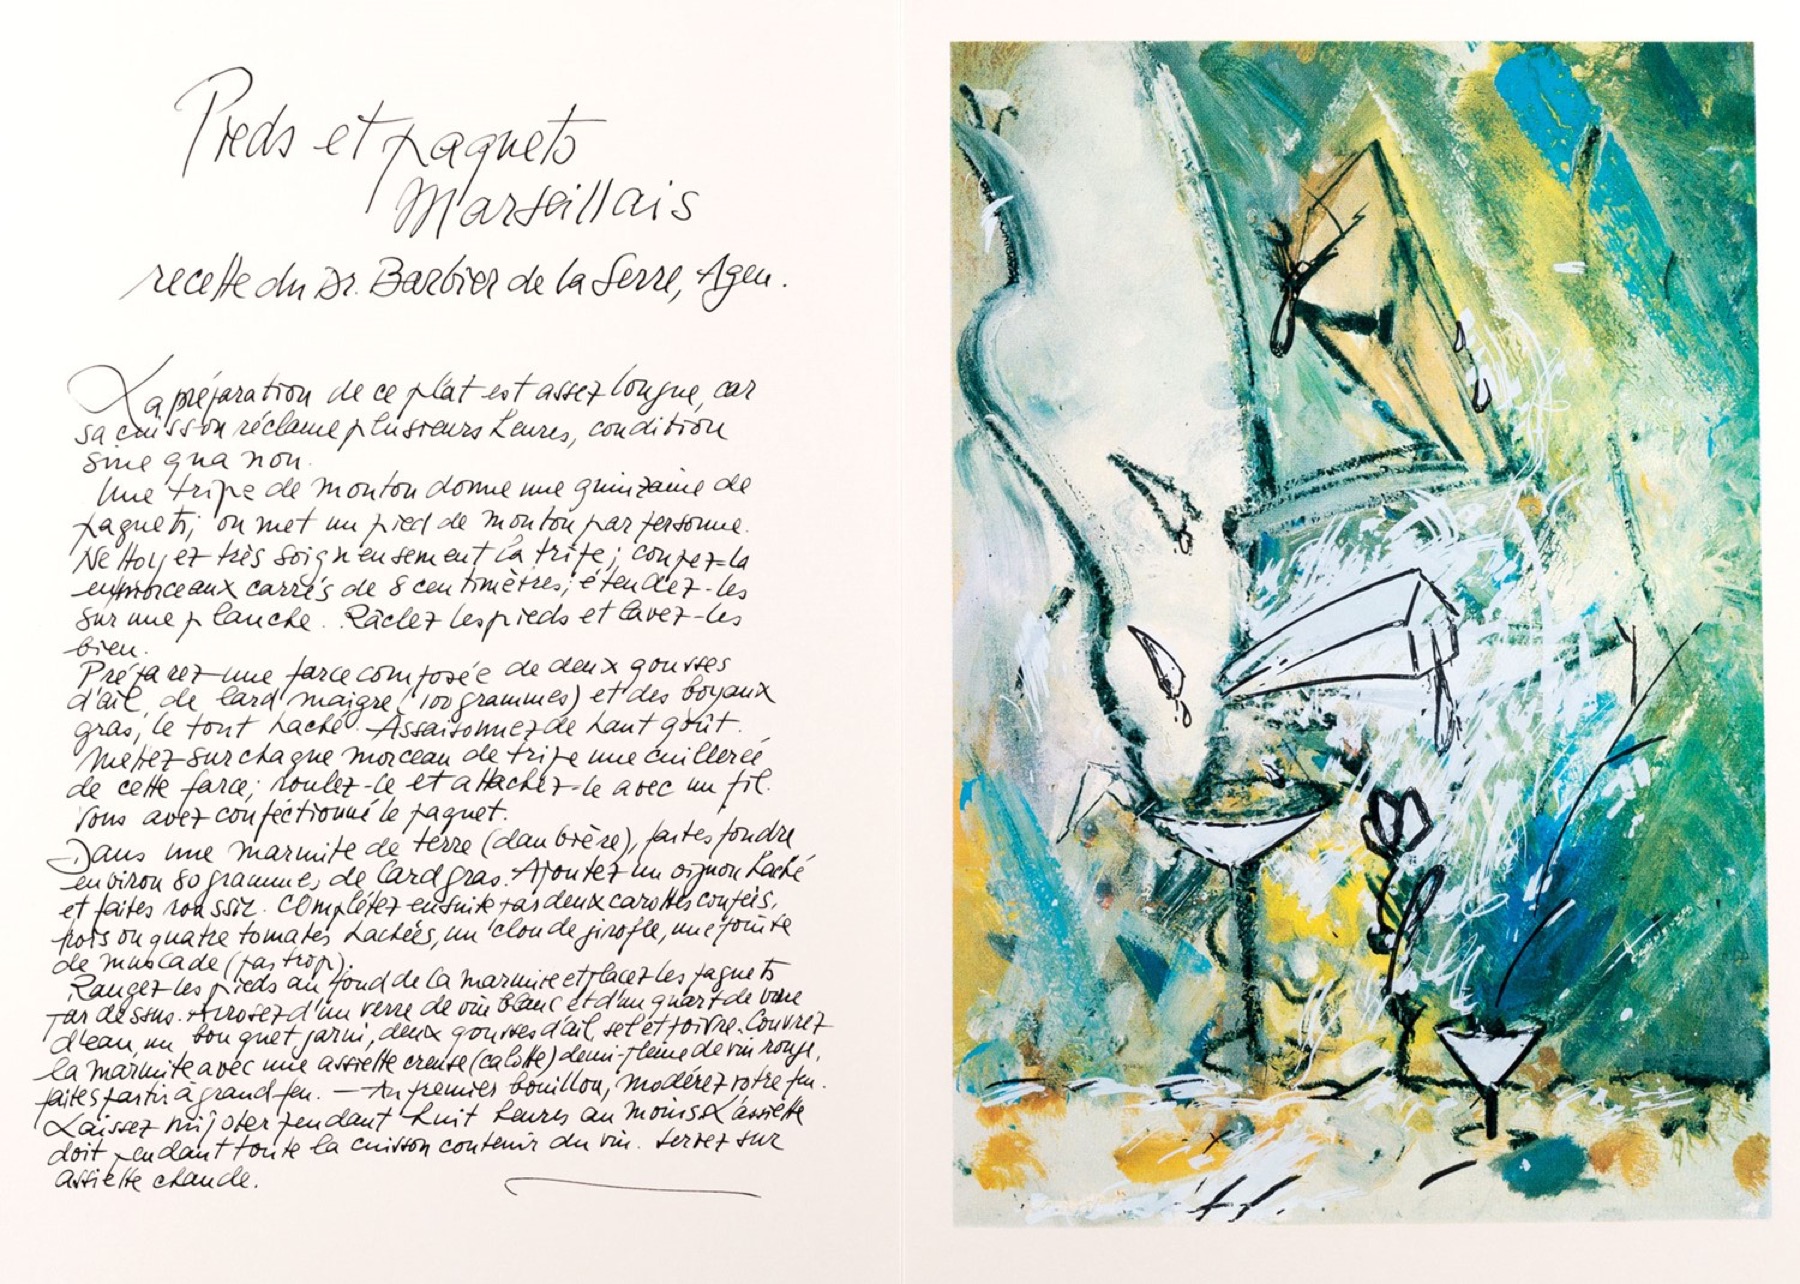 Pieds et paquets
Marseillais
recette du Dr. Barbier de la Serre, Agen.
La préparation de ce plat est assez longue, car
sa cuisson réclame plusieurs heures, condition
sine qua non.
Une tripe de mouton donne une quinzaine de
paquets; on met un pied de mouton par personne.
Nettoyez très soigneusement la tripe; coupez-la
en morceaux carrés de 8 centimètres; étendez-les
sur une planche. Râclez les pieds et lavez-les
bien.
Préparez une farce composée de deux gousses
d'ail, de lard maigre (100 grammes) et des boyaux
gras, le tout haché. Assaisonnez de haut goût.
Mettez sur chaque morceau de tripe une cuillerée
de cette farce; roulez-le et attachez-le avec un fil.
Vous avez confectionné le paquet.
Dans une marmite de terre (daubière), faites fondre
environ 80 grammes de lard gras. Ajoutez un oignon haché
et faites roussir. Complétez ensuite par deux carottes coupées,
trois ou quatre tomates hachées, un clou de girofle, une pointe
de muscade (pas trop).
Rangez les pieds au fond de la marmite et placez les paquets
par dessus. Arrosez d'un verre de vin blanc et d'un quart de verre
d'eau, un bouquet garni, deux gousses d'ail, sel et poivre. Couvrez
la marmite avec une assiette creuse (calotte) demi-pleine de vin rouge,
faites partir à grand feu. — Au premier bouillon, modérez votre feu.
Laissez mijoter pendant huit heures au moins. L'assiette
doit pendant toute la cuisson contenir du vin. Servez sur
assiette chaude.